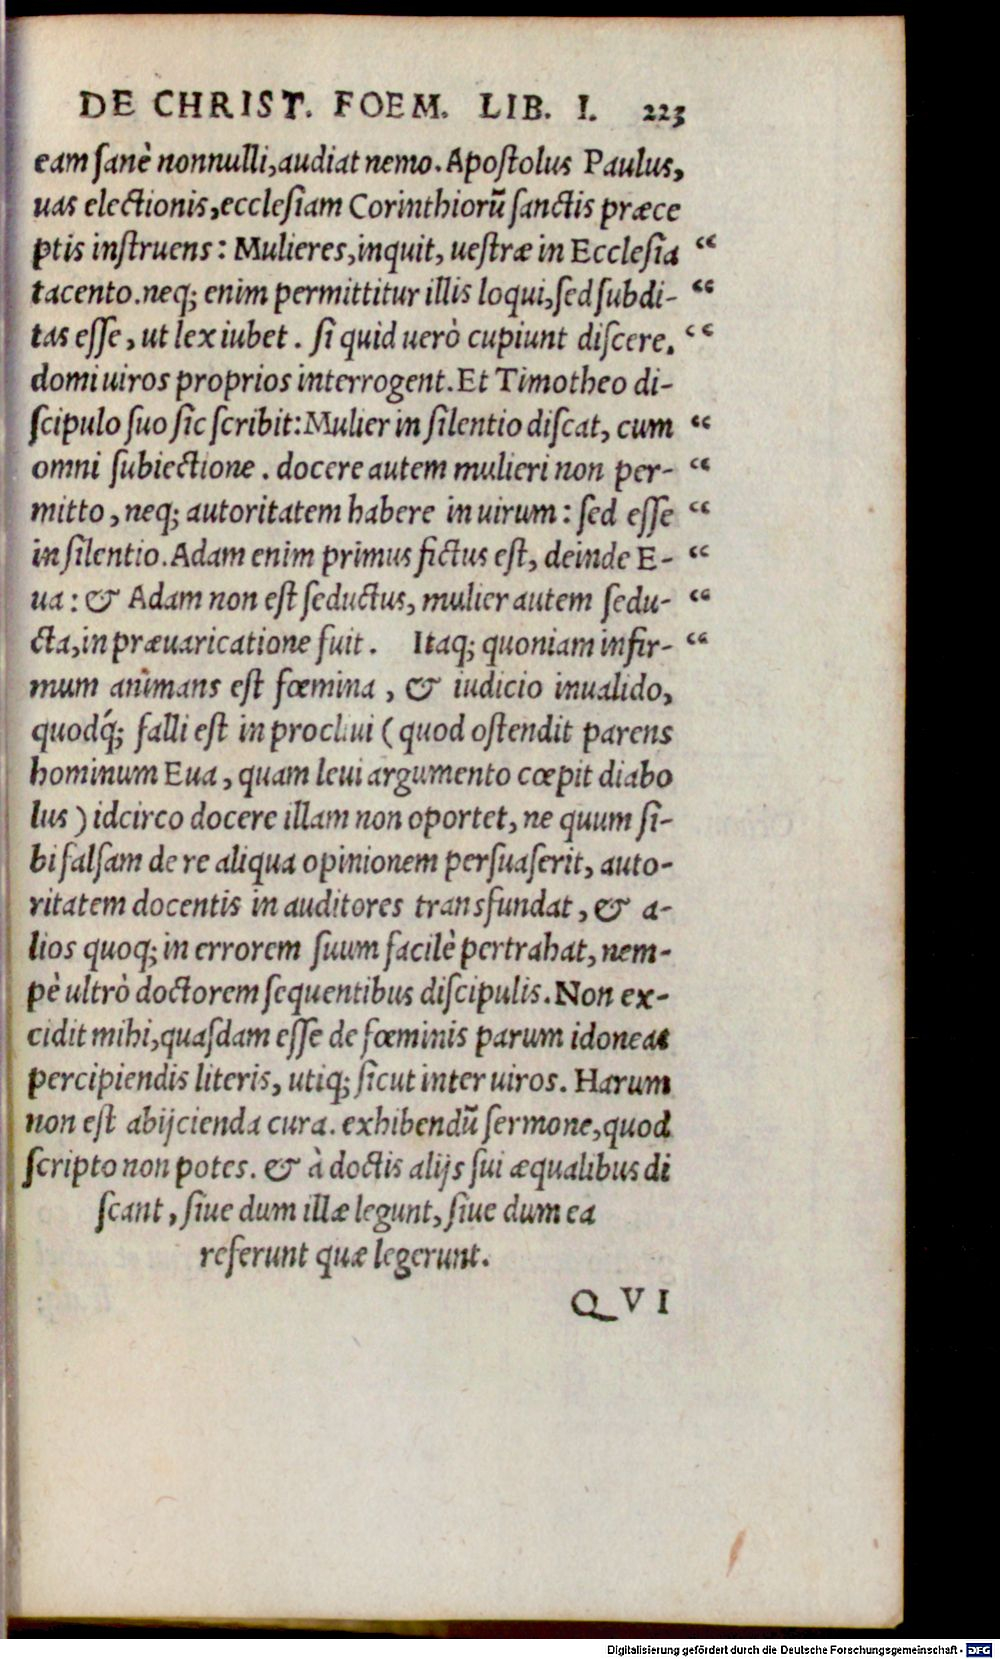 DE CHRIST. FOEM. LIB. I. 223
eam ſanè nonnulli, audiat nemo. Apoſtolus Paulus,
uas electionis, eccleſiam Corinthiorū ſanctis præce
ptis inſtruens: Mulieres, inquit, ueſtræ in Eccleſia “
tacento. neq; enim permittitur illis loqui, ſed ſubdi- “
tas eſſe, ut lex iubet. ſi quid uerò cupiunt diſcere. “
domi uiros proprios interrogent. Et Timotheo di-
ſcipulo ſuo ſic ſcribit: Mulier in ſilentio diſcat, cum “
omni ſubiectione. docere autem mulieri non per- “
mitto, neq; autoritatem habere in uirum: ſed eſſe “
in ſilentio. Adam enim primus fictus eſt, deinde E- “
ua: & Adam non eſt ſeductus, mulier autem ſedu- “
cta, in præuaricatione fuit. Itaq; quoniam infir- “
mum animans eſt fœmina, & iudicio inualido,
quodq́; falli eſt in procliui (quod oſtendit parens
hominum Eua, quam leui argumento cœpit diabo
lus) idcirco docere illam non oportet, ne quum ſi-
bi falſam de re aliqua opinionem perſuaſerit, auto-
ritatem docentis in auditores transfundat, & a-
lios quoq; in errorem ſuum facilè pertrahat, nem-
pè ultrò doctorem ſequentibus diſcipulis. Non ex-
cidit mihi, quaſdam eſſe de fœminis parum idoneas
percipiendis literis, utiq; ſicut inter uiros. Harum
non eſt abijcienda cura. exhibendū ſermone, quod
ſcripto non potes. & à doctis alijs ſui æqualibus di
ſcant, ſiue dum illæ legunt, ſiue dum ea
referunt quæ legerunt.
QVI
Digitalisierung gefördert durch die Deutsche Forschungsgemeinschaft - DFG